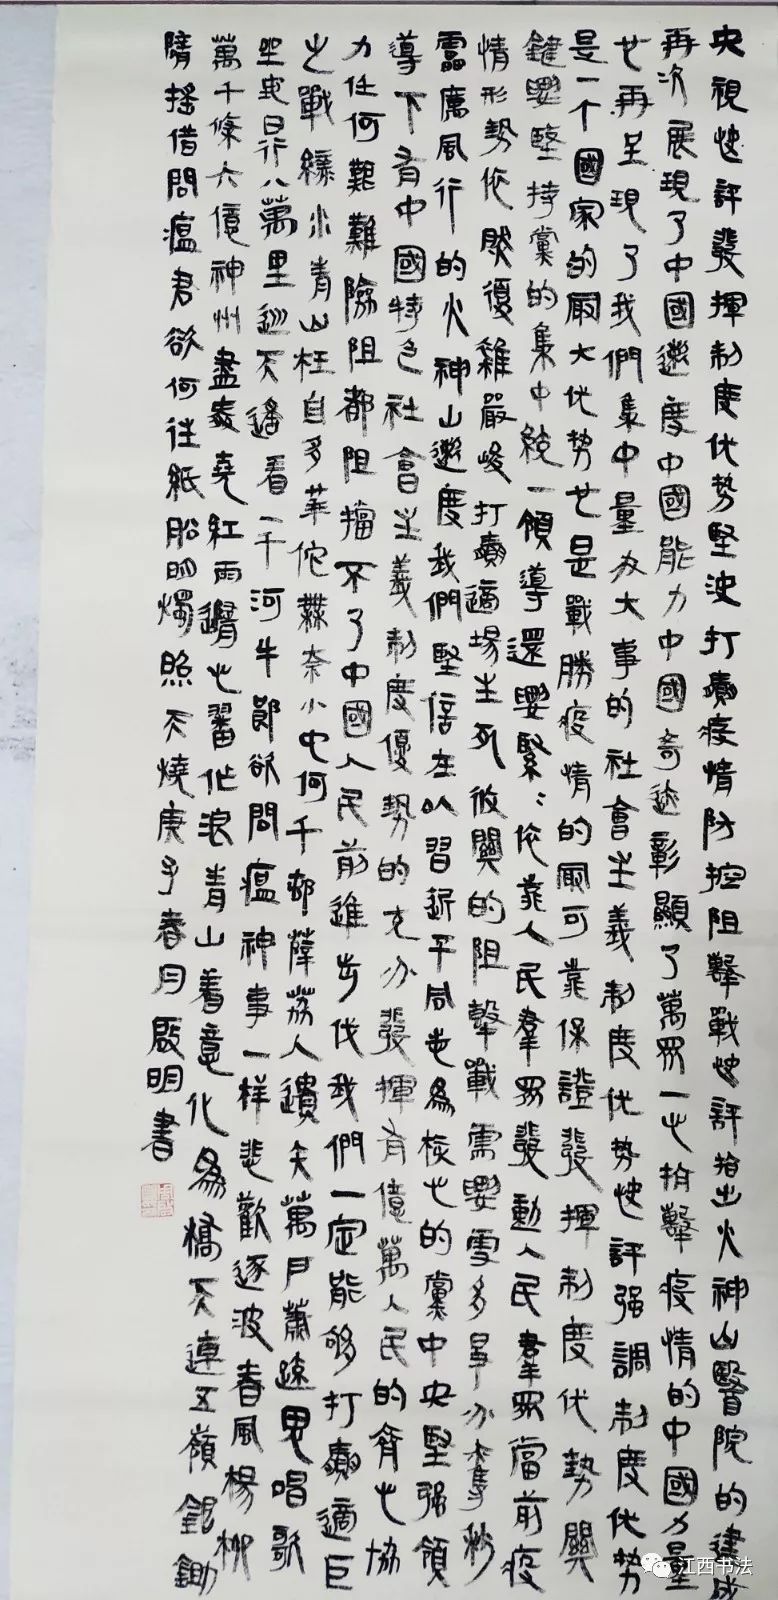 央視快評發揮制度优势坚决打贏疫情防控阻擊戰快評指出火神山醫院的建成
再次展現了中國速度中國能力中國奇迹彰顯了萬眾一心抗擊疫情的中國力量
也再呈現了我們集中量办大事的社會主義制度优势快評强調制度优势
是一个國家的最大优势也是戰勝疫情的最可靠保證發揮制度优勢關
鍵要堅持黨的集中統一領導還要緊緊依靠人民羣眾發動人民羣眾當前疫
情形勢依然復雜嚴峻打贏這場生死攸關的阻擊戰需要更多爭分奪秒
雷厲風行的火神山速度我們堅信在以習近平同志為核心的黨中央堅强領
導下有中國特色社會主義制度優勢的充分發揮有億萬人民的齊心協
力任何艱難險阻都阻擋不了中國人民前進步伐我們一定能够打贏這
之戰綠水青山枉自多華佗無奈小虫何千邨薜荔人遺矢萬戶蕭疏鬼唱歌
坐地日行八萬里巡天遙看一千河牛郎欲問瘟神事一样悲歡逐波春風楊柳
萬千條六億神州盡舜堯紅雨隨心翻作浪青山着意化為橋天連五嶺銀鋤
隋搖借問瘟君欲何往紙船明燭照天燒庚子春月啟明書
江西书法